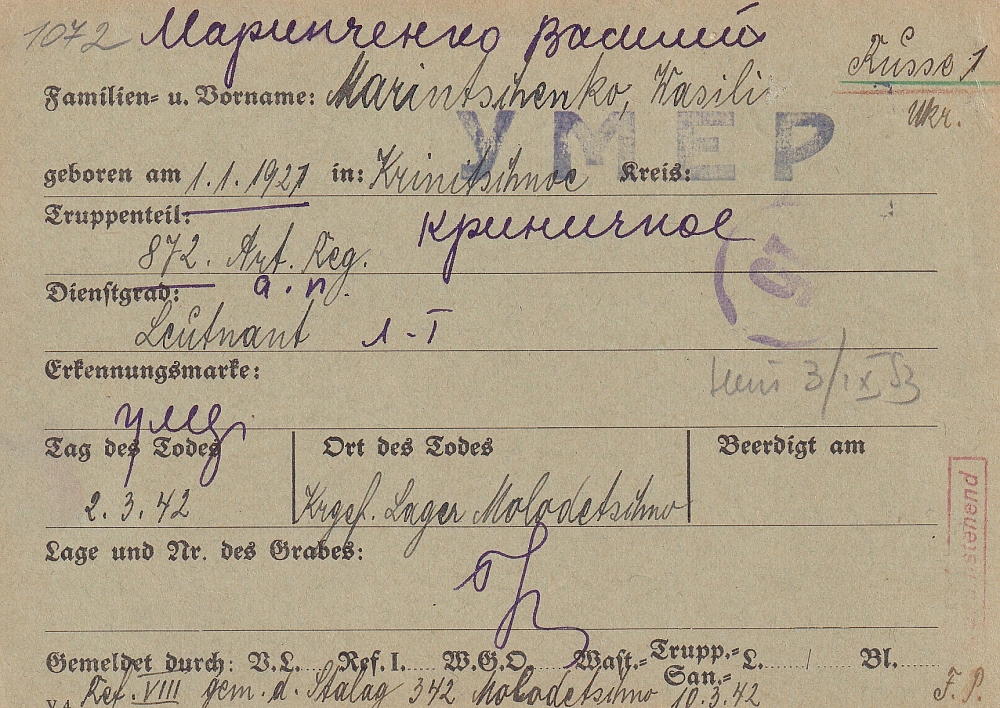 1072 Маринченко Василий
Russe 1
Familien= u. Vorname: Marintschenko, Wasili
Ukr.
УМЕР
geboren am 1.1.1921 in: Krinitschnoe Kreis:
Truppenteil: Криничное
872. Art. Reg.
а.п.
Dienstgrad:
Leutnant л-т
Erkennungsmarke:
3/IX 53
Tag des Todes Ort des Todes Beerdigt am
2.3.42 Krgef. Lager Molodetschno
stehend
Lage und Nr. des Grabes:
Gemeldet durch: V.L. Ref. I. W.G.O. Wast.= Trupp.= San.= L. / Bl.
Ref. VIII gem. d. Stalag 342 Molodetschno 10.3.42 F.P.